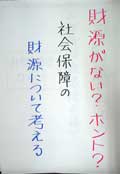 財源がない?ホント?
社会保障の
財源について考える